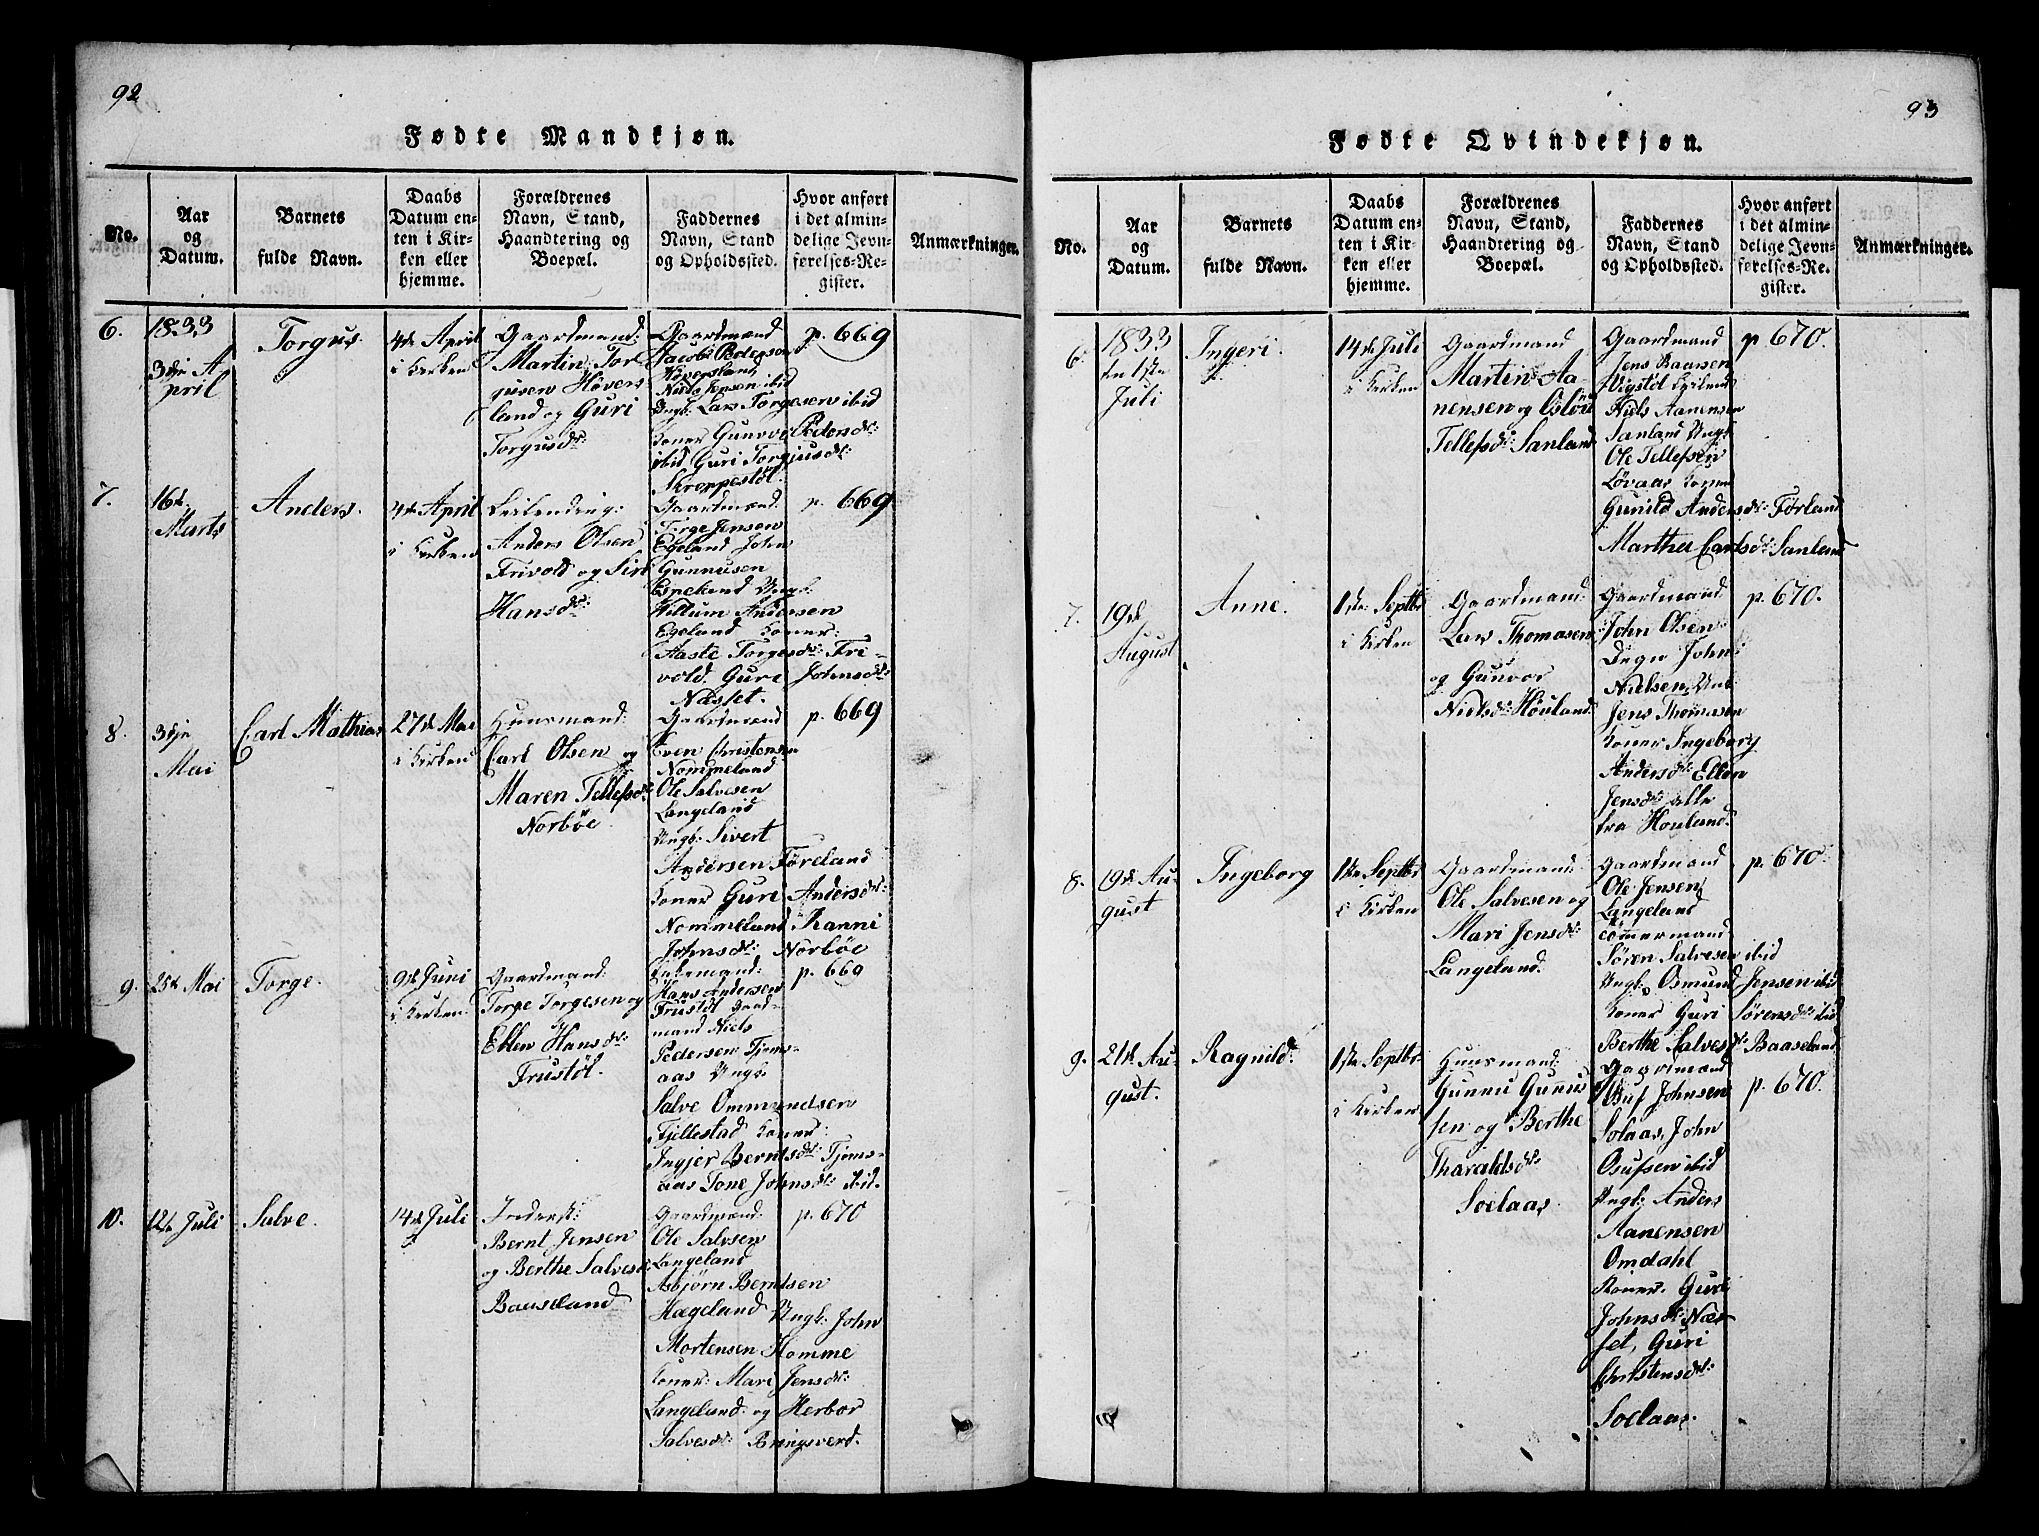 92
Fødte Mandkjøn.
No.
Aar
og
Datum.
Barnets
fulde Navn.
Daabs
Datum en-
ten i Kir-
ken eller
hjemme.
Forældrenes
Navn, Stand,
Haandtering og
Boepæl.
Faddernes
Navn, Stand
og Opholdssted.
Hvor anført
i det almin-
delige Jevn-
førelses-Re-
gister.
Anmærkninger.
6.
1833
3die A
pril
Torgus.
4de April
i Kirken
Gaardmand:
Martin Tor
gusen Høvers
land og Guri
Torgusdr:
Gaardmænd
Jacob Pedersen
Høversland
Niels Jensen ibid
Ungk: Lars Torgesen ibid
Koner Gunvor Pedersdr:
ibid Guri Torgiusdr:
Skroppestøl.
p. 669
7.
16de
Marts
Anders.
4de April
i Kirken
Leilending:
Anders Olsen
Frivold og Siri
Hansdr:
Gaardmænd:
Torge Jensen
Egeland John
Gunnusen
Espekand Ungk:
Willum Andersen
Egeland Koner:
Aaste Torgesdr: Fri-
vold. Guri Johnsdr:
Næsset.
p. 669
8.
3die
Mai
Carl Mathias
27de Mai
i Kirken
Huusmand:
Carl Olsen og
Maren Tellefsdr:
Norbøe.
Gaardmænd
Even Christensen
Nommeland
Ole Salvesen
Langeland
Ungk: Sivert
Andersen Føreland
Koner Guri Andersdr:
Nommeland Kanni
Johnsdr: Norbøe
p. 669
9.
23de Mai
Torge.
9de Juni
i Kirken.
Gaardmand:
Torge Torgesen og
Ellen Hansdr:
Frustøl.
Hans Andersen
Frustøl Gaard
mand Niels
Pedersen Fjoms-
aas Ungk:
Salve Ommundsen
Fjellestad Koner:
Ingjer Berntsdr: Tjoms-
aas Tone Johnsdr: ibid.
p. 669
10.
12te Juli
Salve.
14de Juli
Inderst:
Bernt Jensen
og Berthe Salvesdr
Bauseland
Gaardmænd:
Ole Salvesen
Langeland
Asbjørn Berntsen
Hægeland Ungk: John
Mortensen Homme
Koner: Mari Jensdr:
Langeland og Herbor
Salvesdr: Bringsverd.
p. 670
93
Fødte Qvindekjøn.
No.
Aar
og
Datum.
Barnets
fulde Navn.
Daabs
Datum en-
ten i Kir-
ken eller
hjemme.
Forældrenes
Navn, Stand,
Haandtering og
Boepæl.
Faddernes
Navn, Stand
og Opholdssted.
Hvor anført
i det almin-
delige Jevn-
førelses-Re-
gister.
Anmærkninger.
6.
1833
1ste
Juli
Ingeri.
14de Juli
i Kirken
Gaardmand
Martin Aa-
nensen og Oslou
Tellefsdr: Sanland
Gaardmænd
Jens Baansen
Niels Aanensen
Sanland Ungk
Ole Tellefsen
Løvaas Koner
Gunild Andersdr: Førland
Marthe Carlsdr: Sanland
p. 670.
7.
19de
August
Anne.
1ste Septbr
i Kirken
Gaardmand:
Lars Thomasen
og Gunvor
Nielsdr: Houland.
Gaardmænd
John Olsen
Degn John
Nielsen, Ungk
Jens Thomasen
Koner Ingeborg
Andersdr: Ellen
Jensdr: alle
fra Houland.
p. 670.
8.
19de Au-
gust
Ingeborg
1ste Septbr
i Kirken
Gaardmand:
Ole Salvesen og
Mari Jensdr:
Langeland.
Gaardmænd
Ole Jensen
Langeland
tømmermand
Søren Salvesen ibid
Ungk: Osmund Jensen ibid
Koner Guri Sørensdr: ibid
Berthe Salvesdr: Baaseland
p. 670.
9.
21de Au-
gust.
Ragnild:
1ste Septbr
i Kirken
Huusmand:
Gunnu Gunnus
sen og Berthe
Tharaldsdr:
Soelaas.
Gaardmænd
Osuf Johnsen
Solaas, John
Osufsen ibid
Ungk: Anders
Aanensen
Omdahl
Koner. Guri
Johnsdr: Næs-
set, Guri
Christensdr:
Soelaas.
p. 670.
10